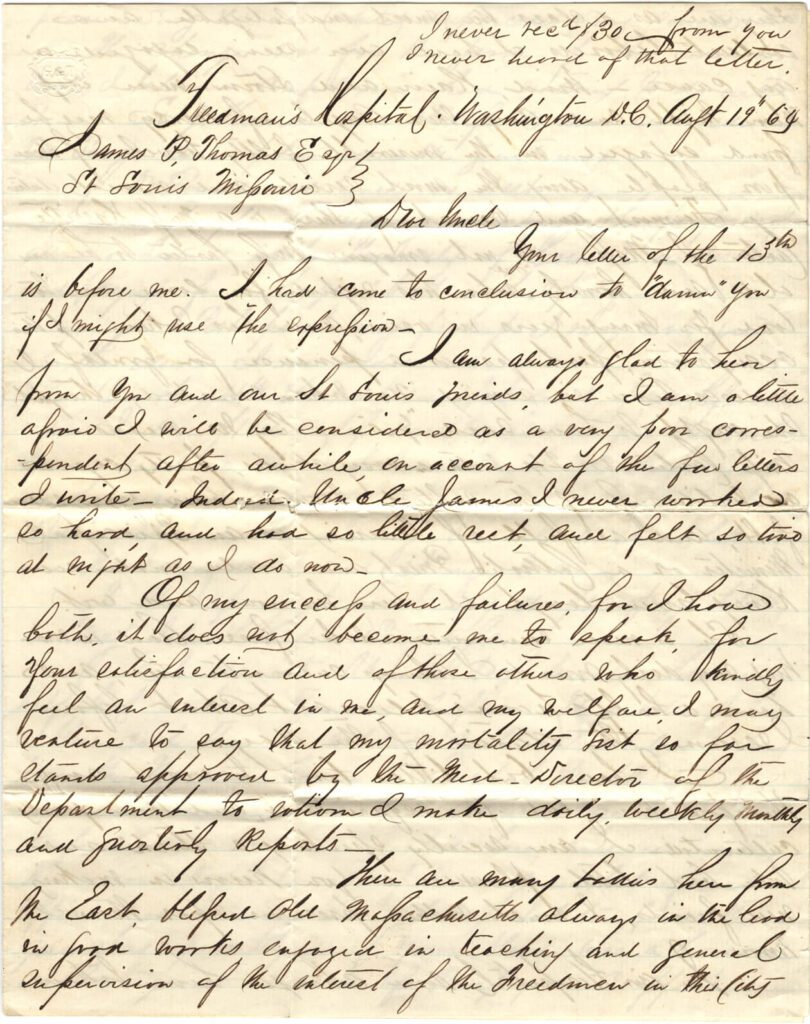 I never recd $30 from you
I never heard of that letter.
Freedman's Hospital. Washington D.C. Augt 19" 64
James P. Thomas Esqr
St Louis Missouri
Dear Uncle
Your letter of the 13th
is before me. I had come to conclusion to "damn" you
if I might use the expression—
I am always glad to hear
from you and our St Louis friends, but I am a little
afraid I will be considered as a very poor corres-
-pondent after awhile, on account of the few letters
I write— Indeed. Uncle James I never worked
so hard, and had so little rest, and felt so tired
at night as I do now—
Of my success and failures, for I have
both, it does not become me to speak, for
your satisfaction and of those others who kindly
feel an interest in me, and my welfare, I may
venture to say that my mortality list so far
stands approved by the Med- Director of the
Department to whom I make daily, weekly Monthly
and Quarterly Reports—
There are many Ladies here from
the East, blessed old Massachusetts always in the lead
in good works, engaged in teaching and general
supervision of the interest of the Freedmen in this City